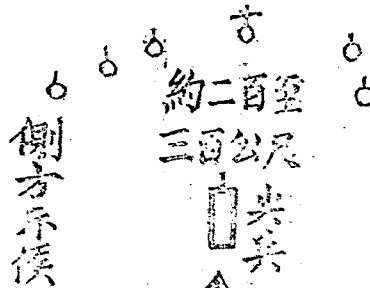 約二百至
三百公尺
尖兵
側方示候